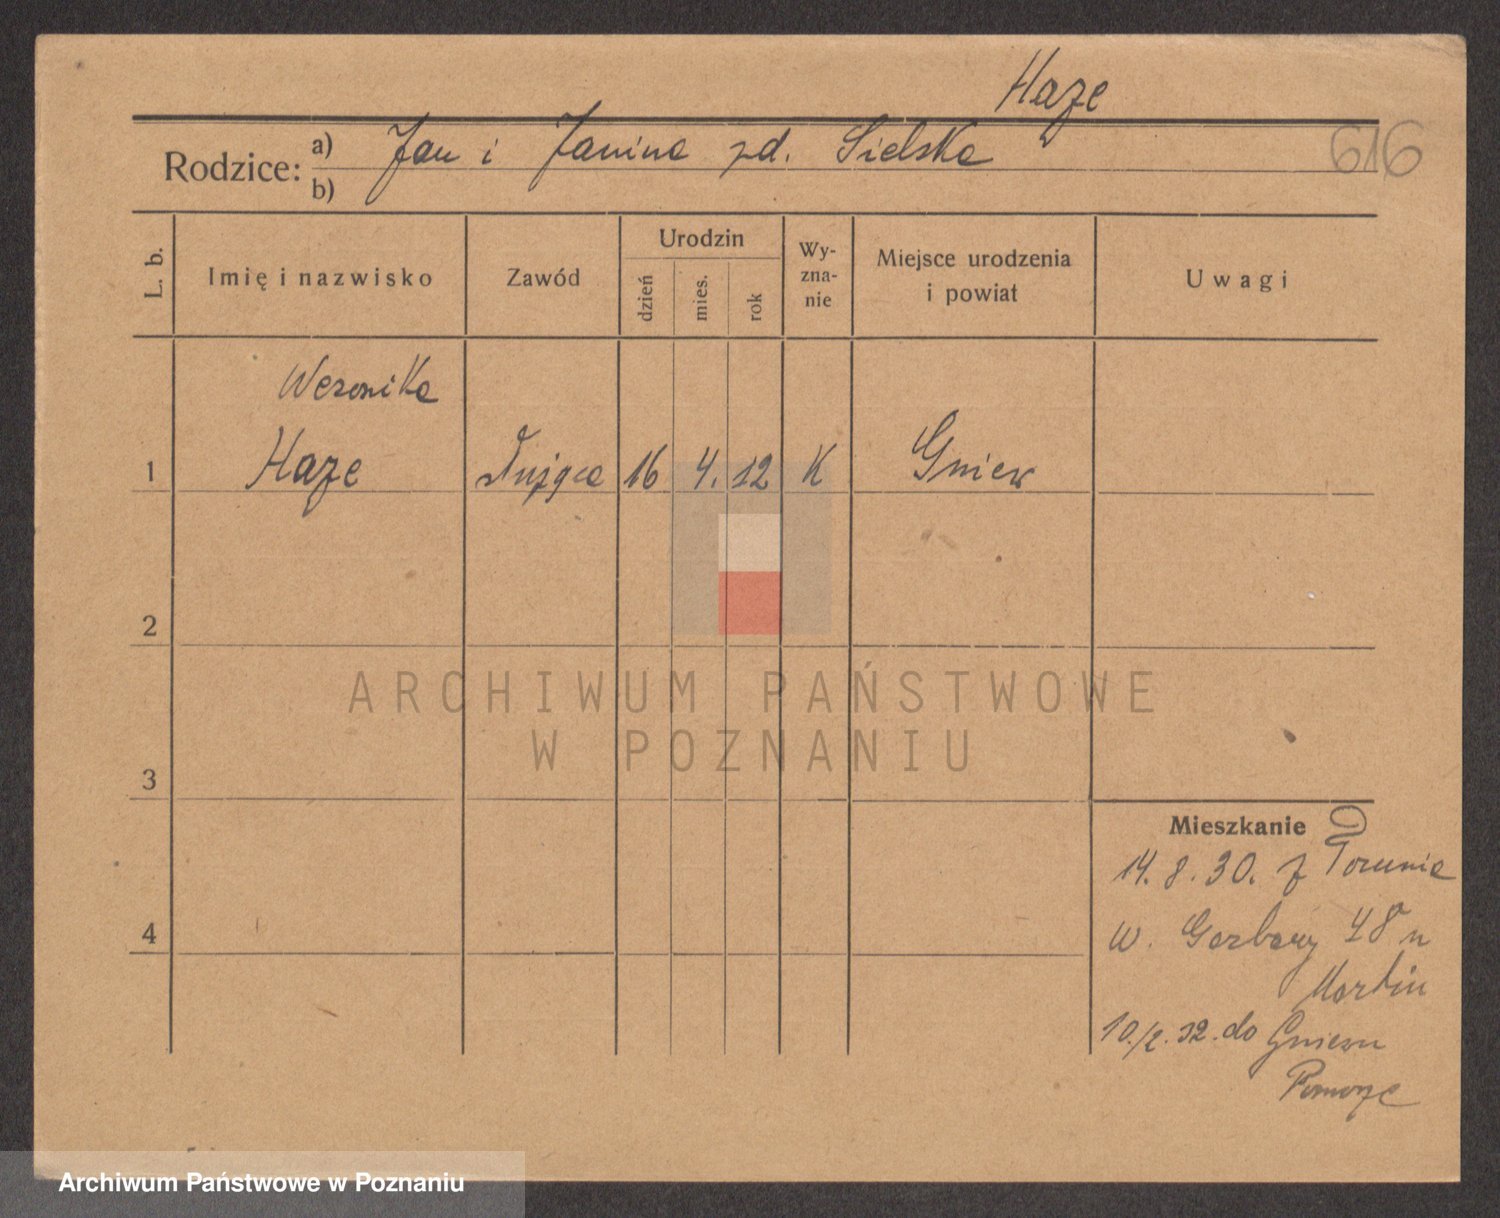 Haze
616
Rodzice: a) Jan i Janina zd. Sielska
b)
L. b.
Imię i nazwisko
Zawód
Urodzin
dzień
mies.
rok
Wy-
zna-
nie
Miejsce urodzenia
i powiat
Uwagi
Weronika
1 Haze służąca 16 4. 12 K Gniew
2
3
4
Mieszkanie
14. 8. 30. z Torunia
W. Garbary 48 u
10./2. 32. do Gniewu
Pomorze
ARCHIWUM PAŃSTWOWE
W POZNANIU
Archiwum Państwowe w Poznaniu